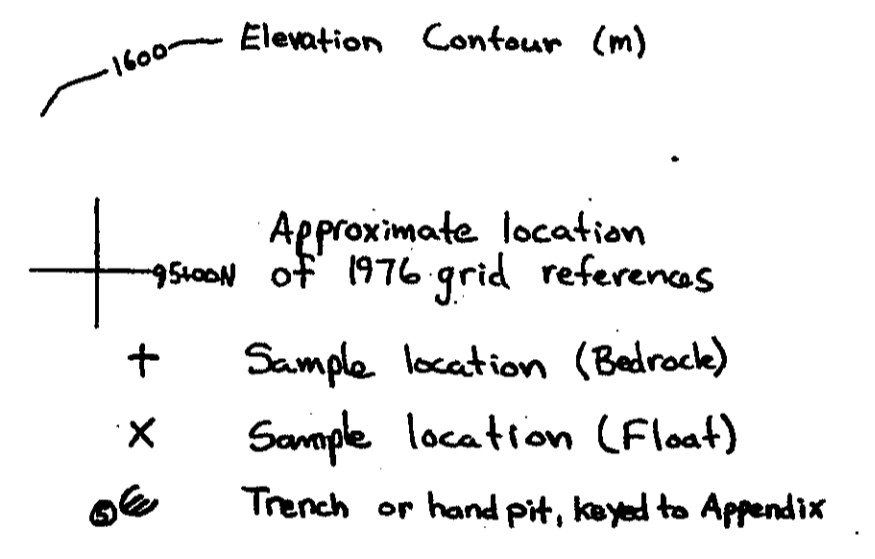 1600 Elevation Contour (m)
Approximate location
95+00N of 1976 grid references
+ Sample location (Bedrock)
X Sample location (Float)
5 Trench or hand pit, keyed to Appendix